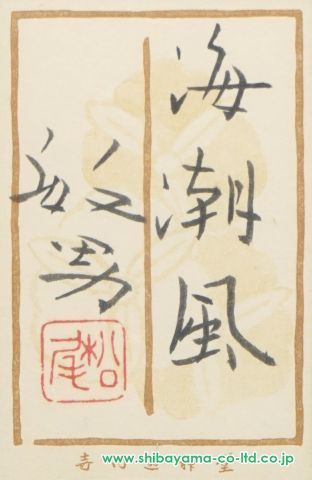 海潮風
敏男
松尾
www.shibayama-co-ltd.co.jp